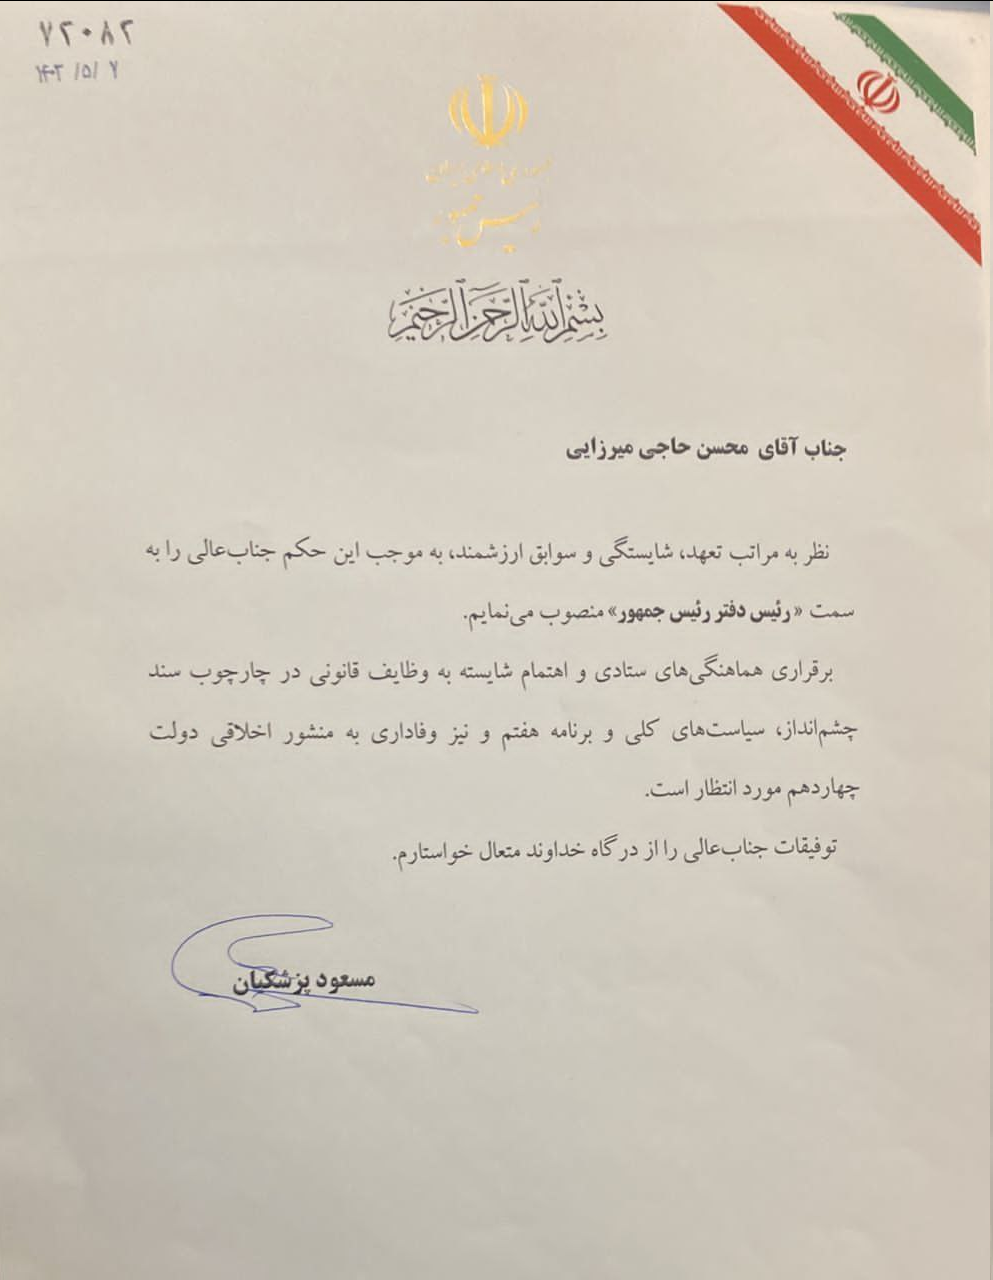 ۷۲۰۸۲
۱۴۰۳/۵/۷
جمهوری اسلامی ایران
رئیس جمهور
بسم الله الرحمن الرحیم
جناب آقای محسن حاجی میرزایی
نظر به مراتب تعهد، شایستگی و سوابق ارزشمند، به موجب این حکم جناب‌عالی را به
سمت «رئیس دفتر رئیس جمهور» منصوب می‌نمایم.
برقراری هماهنگی‌های ستادی و اهتمام شایسته به وظایف قانونی در چارچوب سند
چشم‌انداز، سیاست‌های کلی و برنامه هفتم و نیز وفاداری به منشور اخلاقی دولت
چهاردهم مورد انتظار است.
توفیقات جناب‌عالی را از درگاه خداوند متعال خواستارم.
مسعود پزشکیان